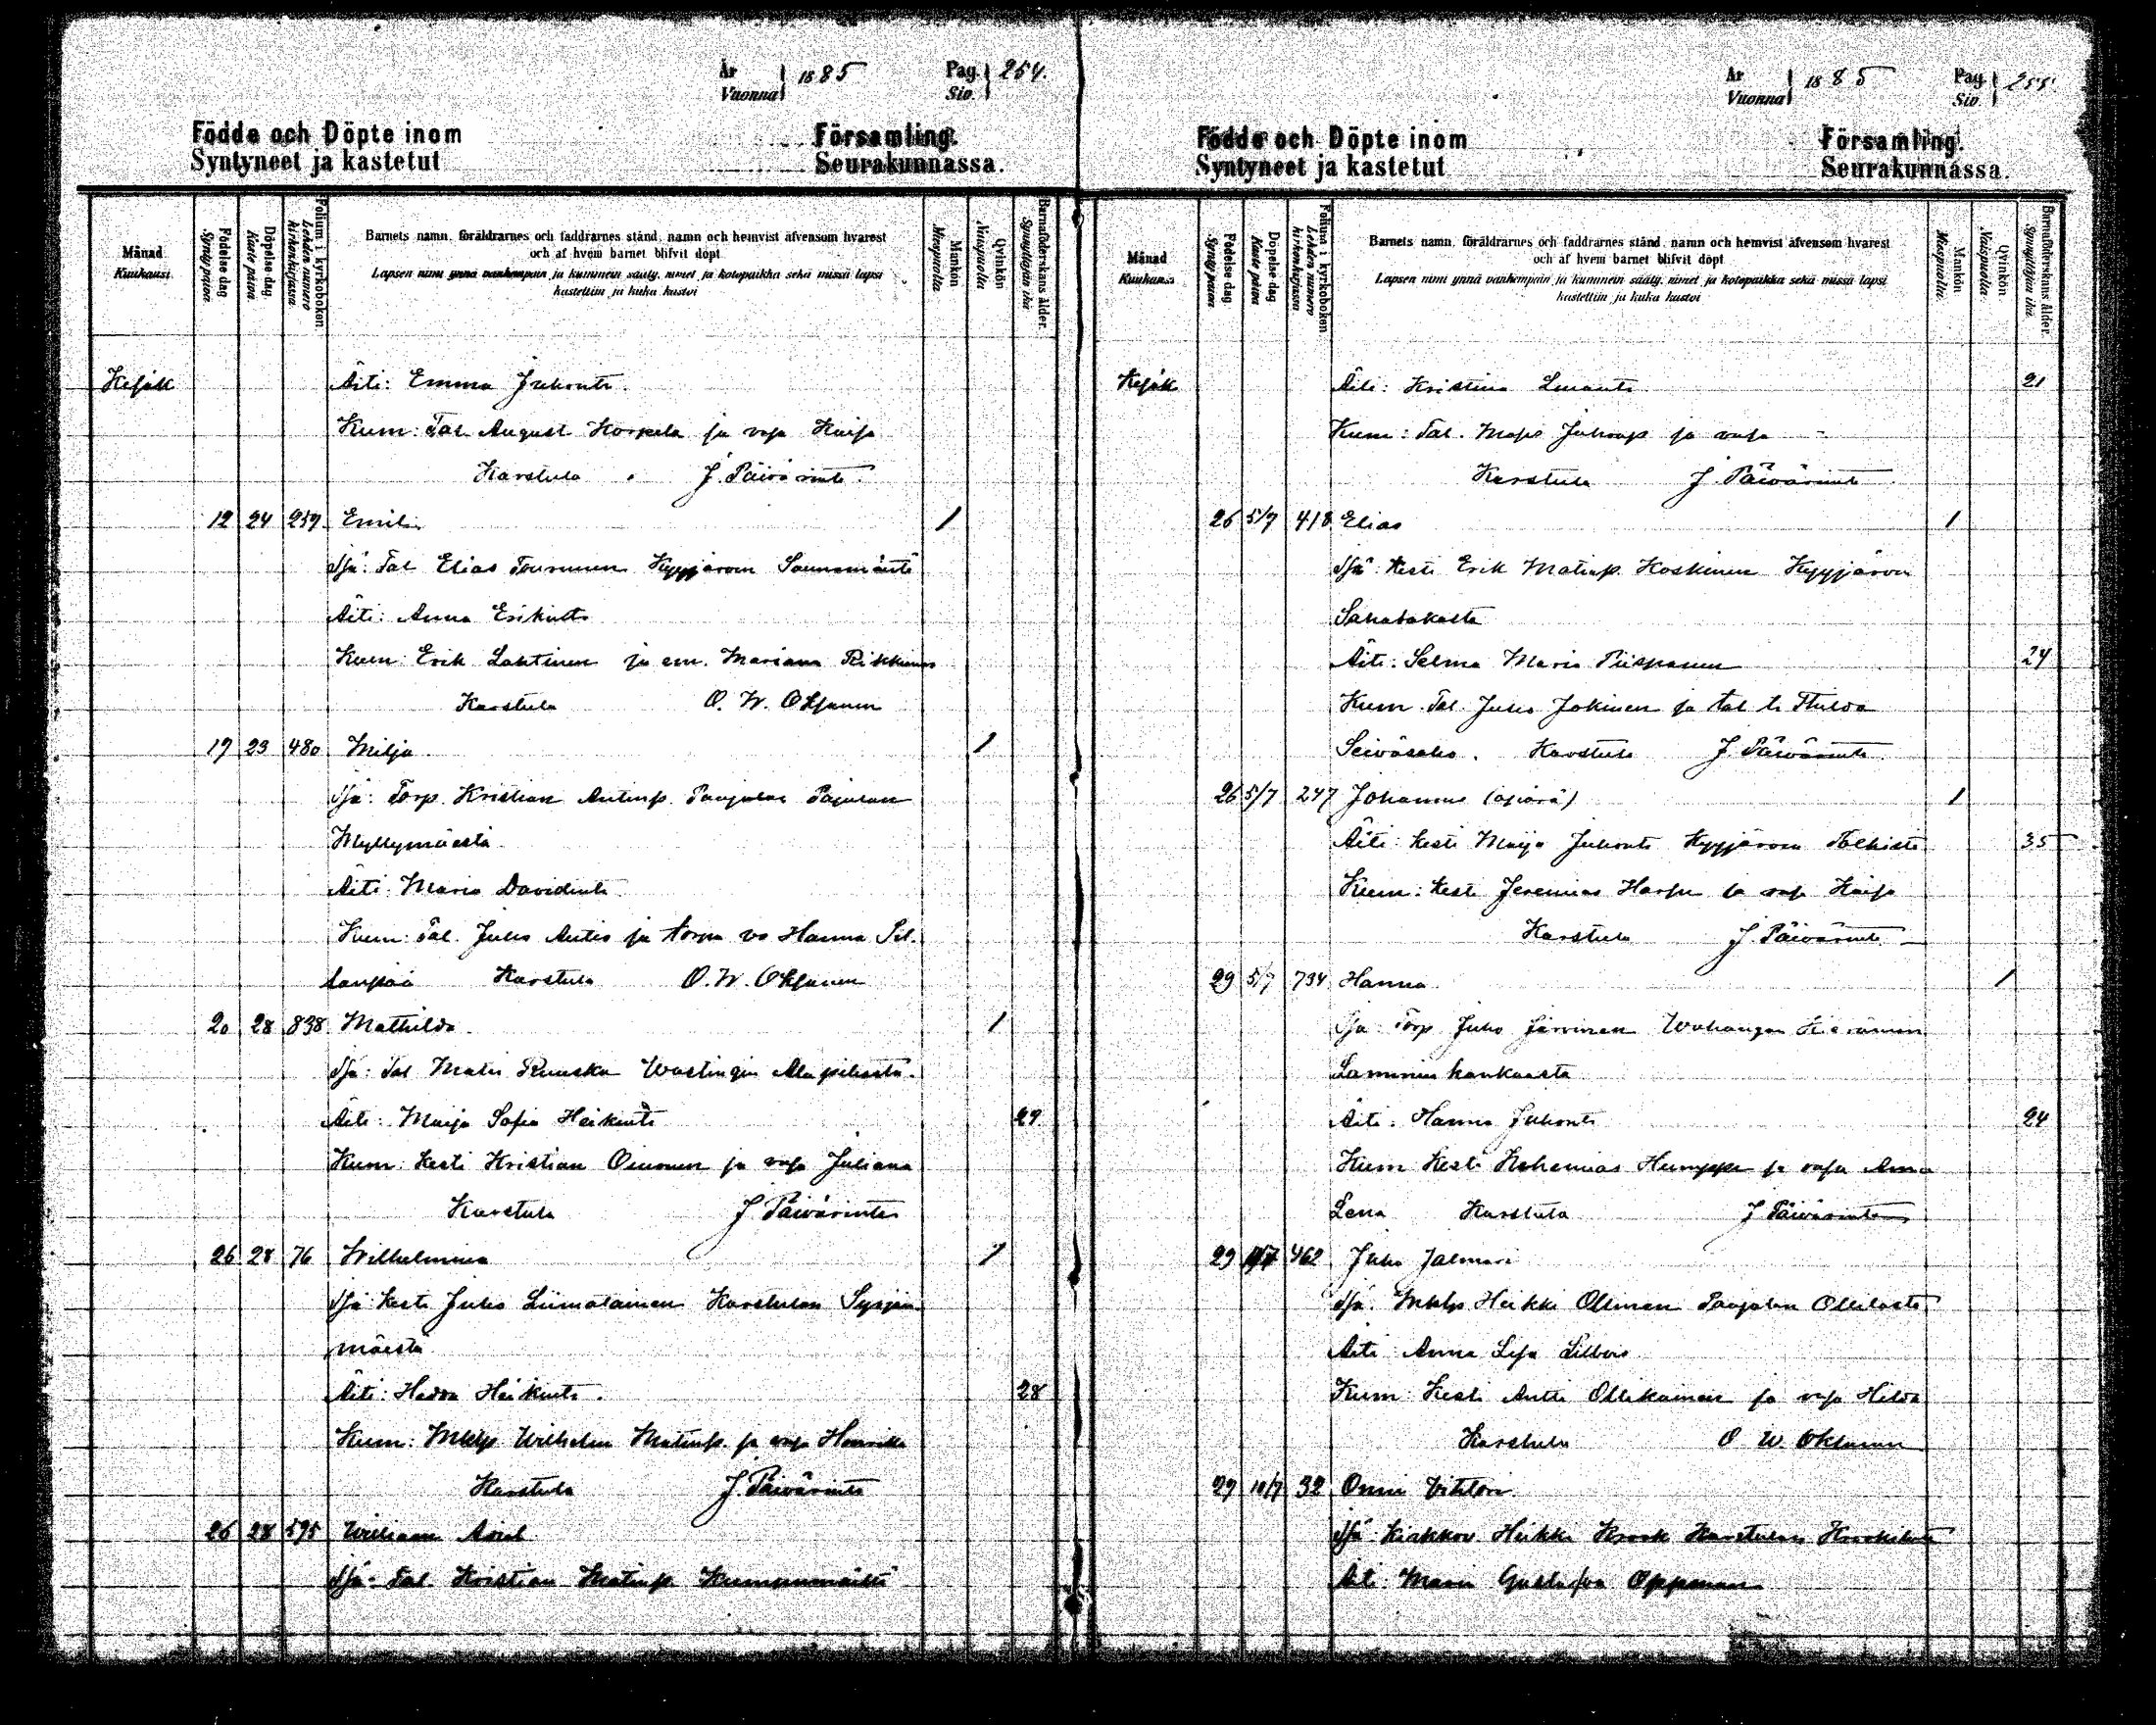 År
Vuonna
1885
Pag.
Siv.
254.
Födde och Döpte inom
Syntyneet ja kastetut
Församling.
Seurakunnassa.
Månad
Kuukausi
Födelse dag
Synty päivä
Döpelse dag
Kaste päivä
Folium i kyrkoboken
Lehden numero kirkonkirjassa
Barnets namn, föräldrarnes och faddrarnes stånd, namn och hemvist äfvensom hvarest
och af hvem barnet blifvit döpt
Lapsen nimi ynnä vanhempain ja kummein sääty, nimet ja kotopaikka sekä missä lapsi
kastettiin ja kuka kastoi
Mankön
Miespuolta
Qvinkön
Naispuolta
Barnaföderskans ålder.
Synnyttäjän ikä
Kesäk
Äiti: Emma Juhontr.
Kum: Tal August Korpela ja vaja Kaisa
Karstula J. Päivärinta
12 24 259 Emil 1
Isä: Tal Elias Tourunen Kyyjärven
Äiti: Anna Erikintr
Kum: Erik Lahtinen ja em. Mariana
Karstula O. W. Oksanen
19 23 480 Milja 1
Isä: Torp. Kristian Antinp. Paajalan
Myllymäestä
Äiti: Maria Davidintr
Kum: Tal. Juho Autio ja torpn vo Hanna
Karstula O. W. Oksanen
20 28 838 Mathilda 1
Isä: Tal Matti Ruuska Wastingin
Äiti: Maija Sofia Heikintr 29
Kum: Kesti Kristian Oinonen ja vaja Juliana
Karstula J Päivärinta
26 28 76 Wilhelmina 1
Isä Kesti Juho Liimatainen Karstulan
mäestä
Äiti: Hedda Heikintr. 28
Kum: Mklp Wilhelm Matinp. ja vaja
Karstula J. Päivärinta
26 28 595
Isä: Tal. Kristian Matinp.
År
Vuonna
1885
Pag
Siv
255
Födde och Döpte inom
Syntyneet ja kastetut
Församling.
Seurakunnassa.
Månad
Kuukausi
Födelse dag
Synty päivä
Döpelse dag
Kaste päivä
Folium i kyrkoboken
Lehden numero kirkonkirjassa
Barnets namn, föräldrarnes och faddrarnes stånd, namn och hemvist äfvensom hvarest
och af hvem barnet blifvit döpt
Lapsen nimi ynnä vanhempain ja kummein sääty, nimet ja kotopaikka sekä missä lapsi
kastettiin ja kuka kastoi
Mankön
Miespuolta
Qvinkön
Naispuolta
Barnaföderskans ålder.
Synnyttäjän ikä
Kesäk
Äiti: Kristina 21
Kum: Tal. ja vaja -
Karstula J. Päivärinta
26 5/7 418 Elias 1
Isä: Kesti Erik Matinp. Koskinen Kyyjärven
Äiti: Selma Maria Piispanen 24
Kum. Tal. Juho Jokinen ja tal tr Hulda
Karstula J. Päivärinta
26 5/7 247 Johannes (äpärä) 1
Äiti: Kesti Maija Juhontr Kyyjärven 35
Kum: Kesti Jeremias Harju ja vaja Kaisa
Karstula J. Päivärinta
29 5/7 734 Hanna 1
Isä: Torp Juho Järvinen Wahangan
Äiti: Hanna Juhontr 24
Kum Kesti Nehemias Humppi ja vaja Anna
Lena Karstula J Päivärinta
29 462 Juho Jalmari
Isä: Mklp. Heikki Ollinen Paajalan Ollilasta
Äiti Anna Lisa
Kum: Kesti Antti Ollikainen ja vaja Hilda
Karstula O W. Oksanen
29 10/7 32 Onni Vihtori
Isä: Heikki Krook Karstulan
Äiti: Maria Gustafva Oppman